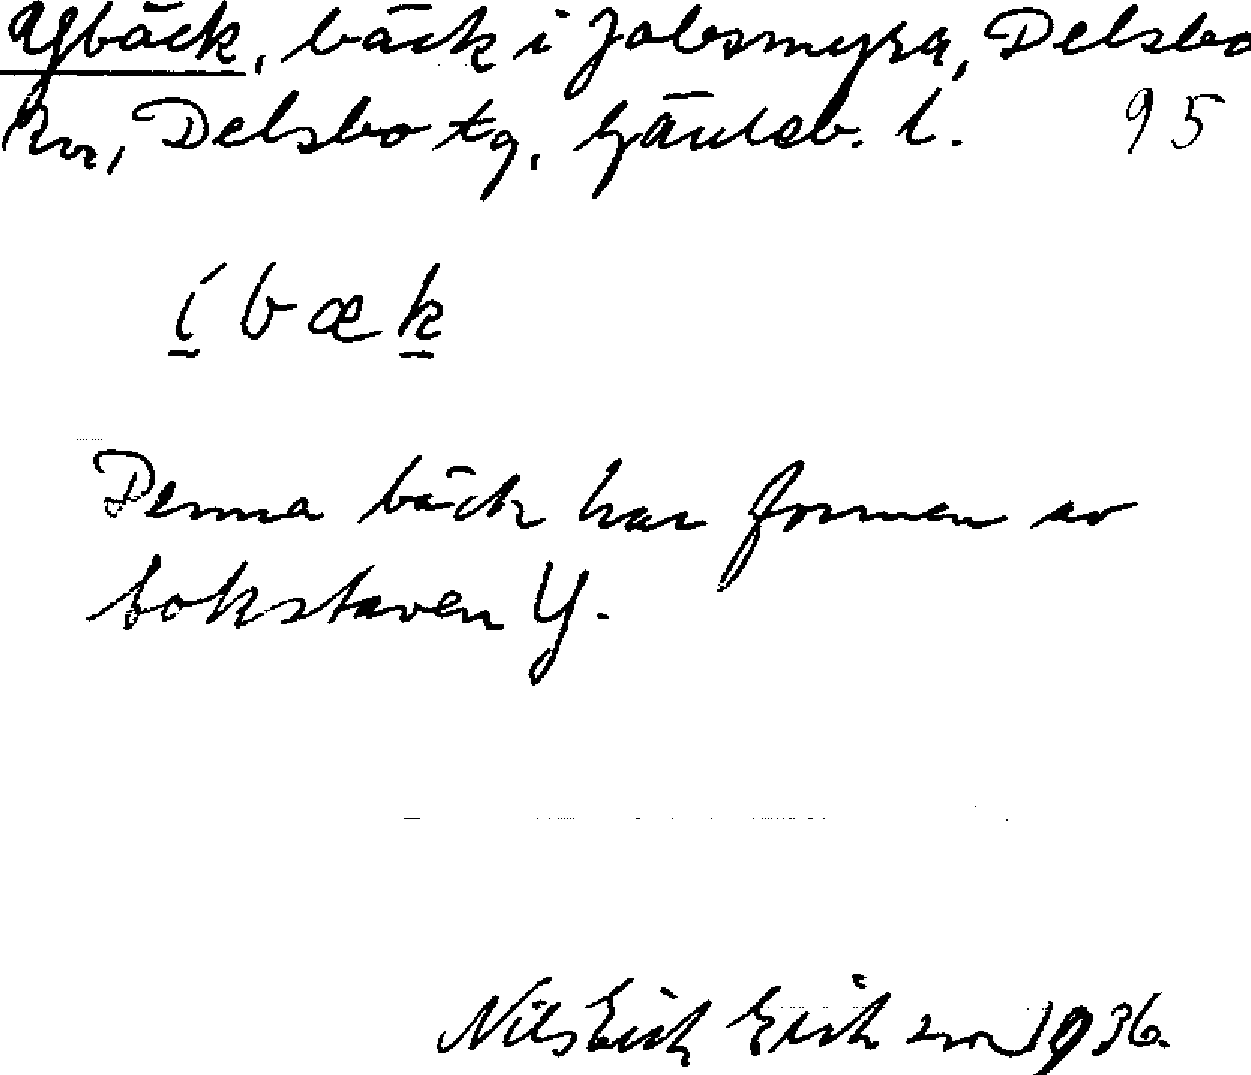 Ybäck, bäck i Jobsmyra, Delsbo
sn, Delsbo tg, Gävleb. l. 95
íbæk
Denna bäck har formen av
bokstaven Y.
Nils Erik Erikson 1936.